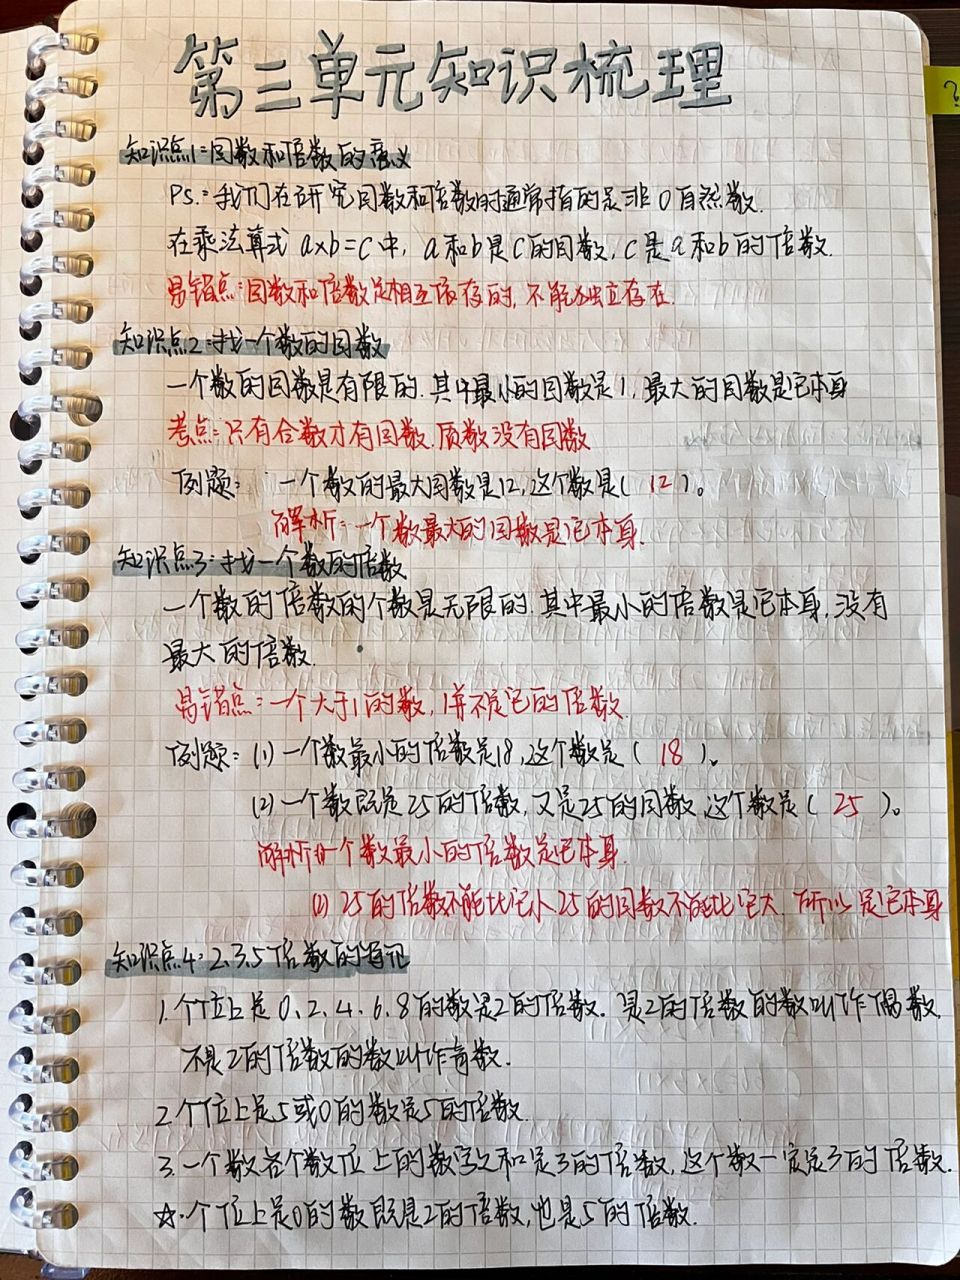 第三单元知识梳理
知识点1:因数和倍数的意义
PS.:我们在研究因数和倍数时通常指的是非0自然数.
在乘法算式 a×b=c中, a和b是c的因数, c是a和b的倍数.
易错点:因数和倍数是相互依存的, 不能独立存在.
知识点2:找一个数的因数
一个数的因数是有限的.其中最小的因数是1, 最大的因数是它本身
考点:只有合数才有因数.质数没有因数
例题: 一个数的最大因数是12,这个数是( 12 )。
解析:一个数最大的因数是它本身.
知识点3:找一个数的倍数
一个数的倍数的个数是无限的.其中最小的倍数是它本身,没有
最大的倍数.
易错点:一个大于1的数, 1并不是它的倍数.
例题:(1)一个数最小的倍数是18,这个数是( 18 )。
(2)一个数既是25的倍数,又是25的因数,这个数是( 25 )。
解析 一个数最小的倍数是它本身.
25的倍数不能比它小 25的因数不能比它大, 所以是它本身
知识点4:2.3.5倍数的特征
1.个位上是0、2、4、6、8的数是2的倍数. 是2的倍数的数叫作偶数,
不是2的倍数的数叫作奇数.
2.个位上是5或0的数是5的倍数.
3.一个数各个数位上的数字之和是3的倍数,这个数一定是3的倍数.
☆.个位上是0的数既是2的倍数,也是5的倍数.